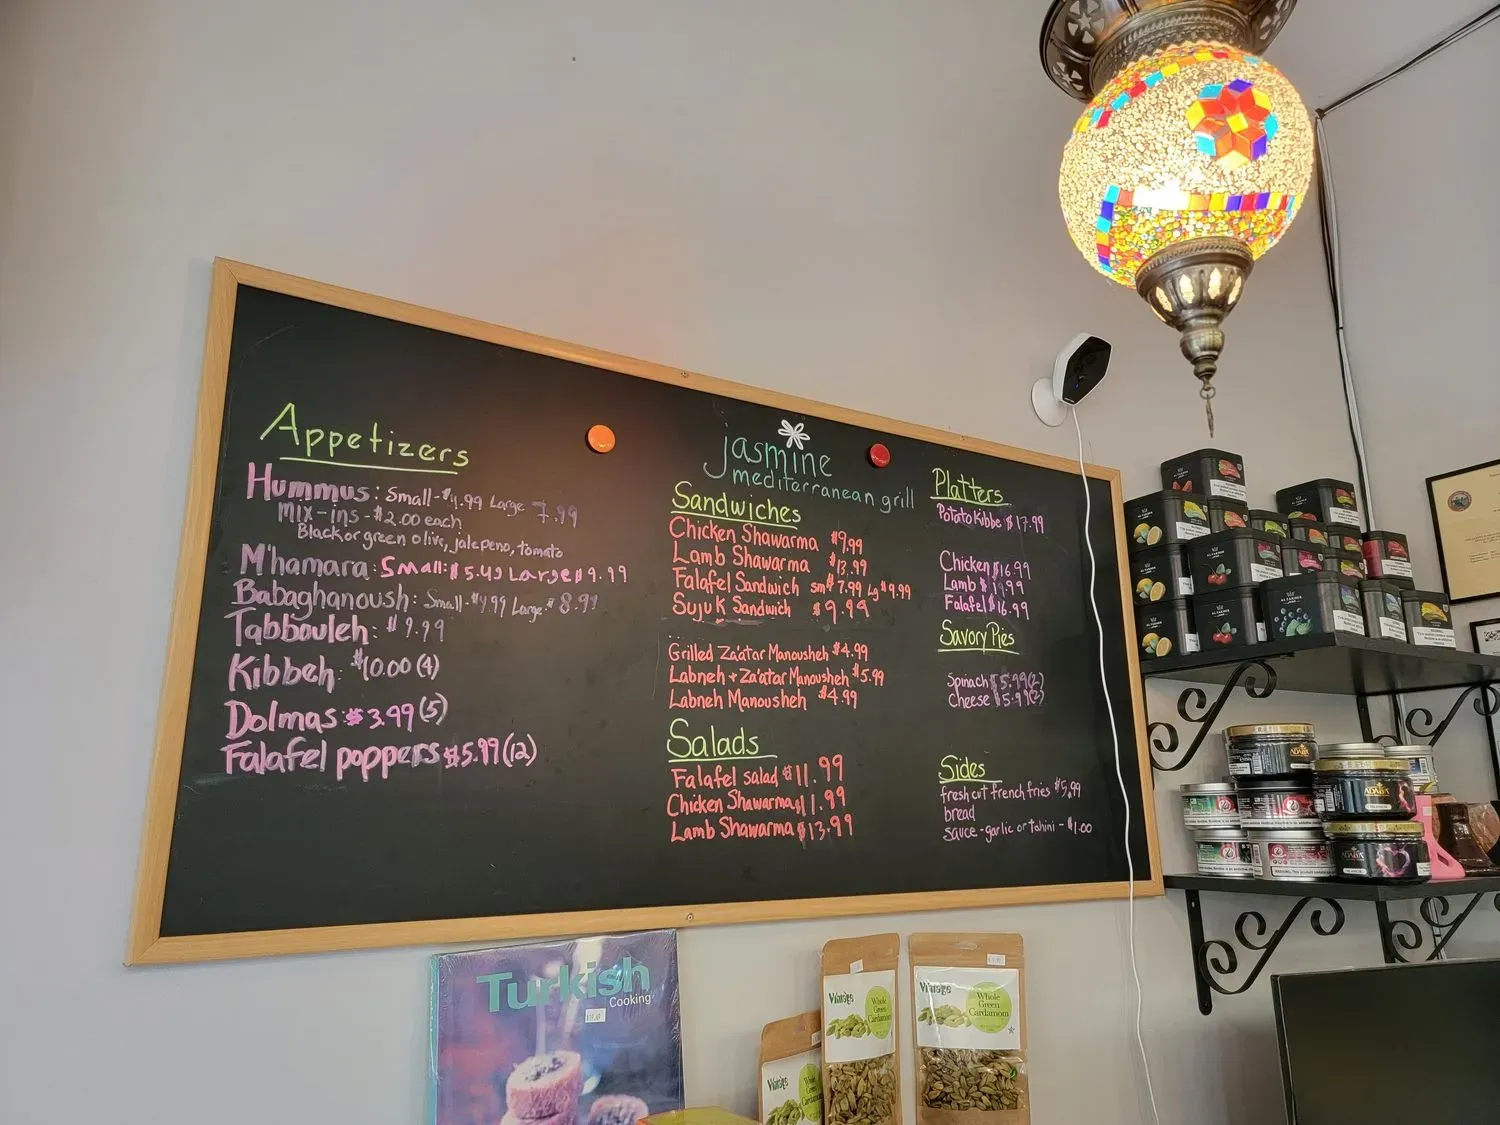 Appetizers
Hummus: Small-$4.99 Large 7.99
Mix-ins-$2.00 each
Black or green olive, jalepeno, tomato
M'hamara: Small:$5.49 Large$9.99
Babaghanoush: Small-$4.99 Large-$8.99
Tabbouleh: $9.99
Kibbeh: $10.00 (4)
Dolmas $3.99(5)
Falafel poppers $5.99(12)
jasmine
mediterranean grill
Sandwiches
Chicken Shawarma $9.99
Lamb Shawarma $13.99
Falafel Sandwich sm $7.99 Lg $9.99
Sujuk Sandwich $9.99
Grilled Za'atar Manousheh $4.99
Labneh + Za'atar Manousheh $5.99
Labneh Manousheh $4.99
Salads
Falafel salad $11.99
Chicken Shawarma $11.99
Lamb Shawarma $13.99
Platters
Potato Kibbe $17.99
Chicken $16.99
Lamb $19.99
Falafel $16.99
Savory Pies
Spinach $5.99(2)
Cheese $5.99(2)
Sides
fresh cut french fries $5.99
bread
sauce-garlic or tahini-$1.00
Turkish
Cooking
Whole
Green
Cardamom
Whole
Green
Cardamom
AL FAKHER
AL FAKHER
AL FAKHER
ADALYA
ADALYA